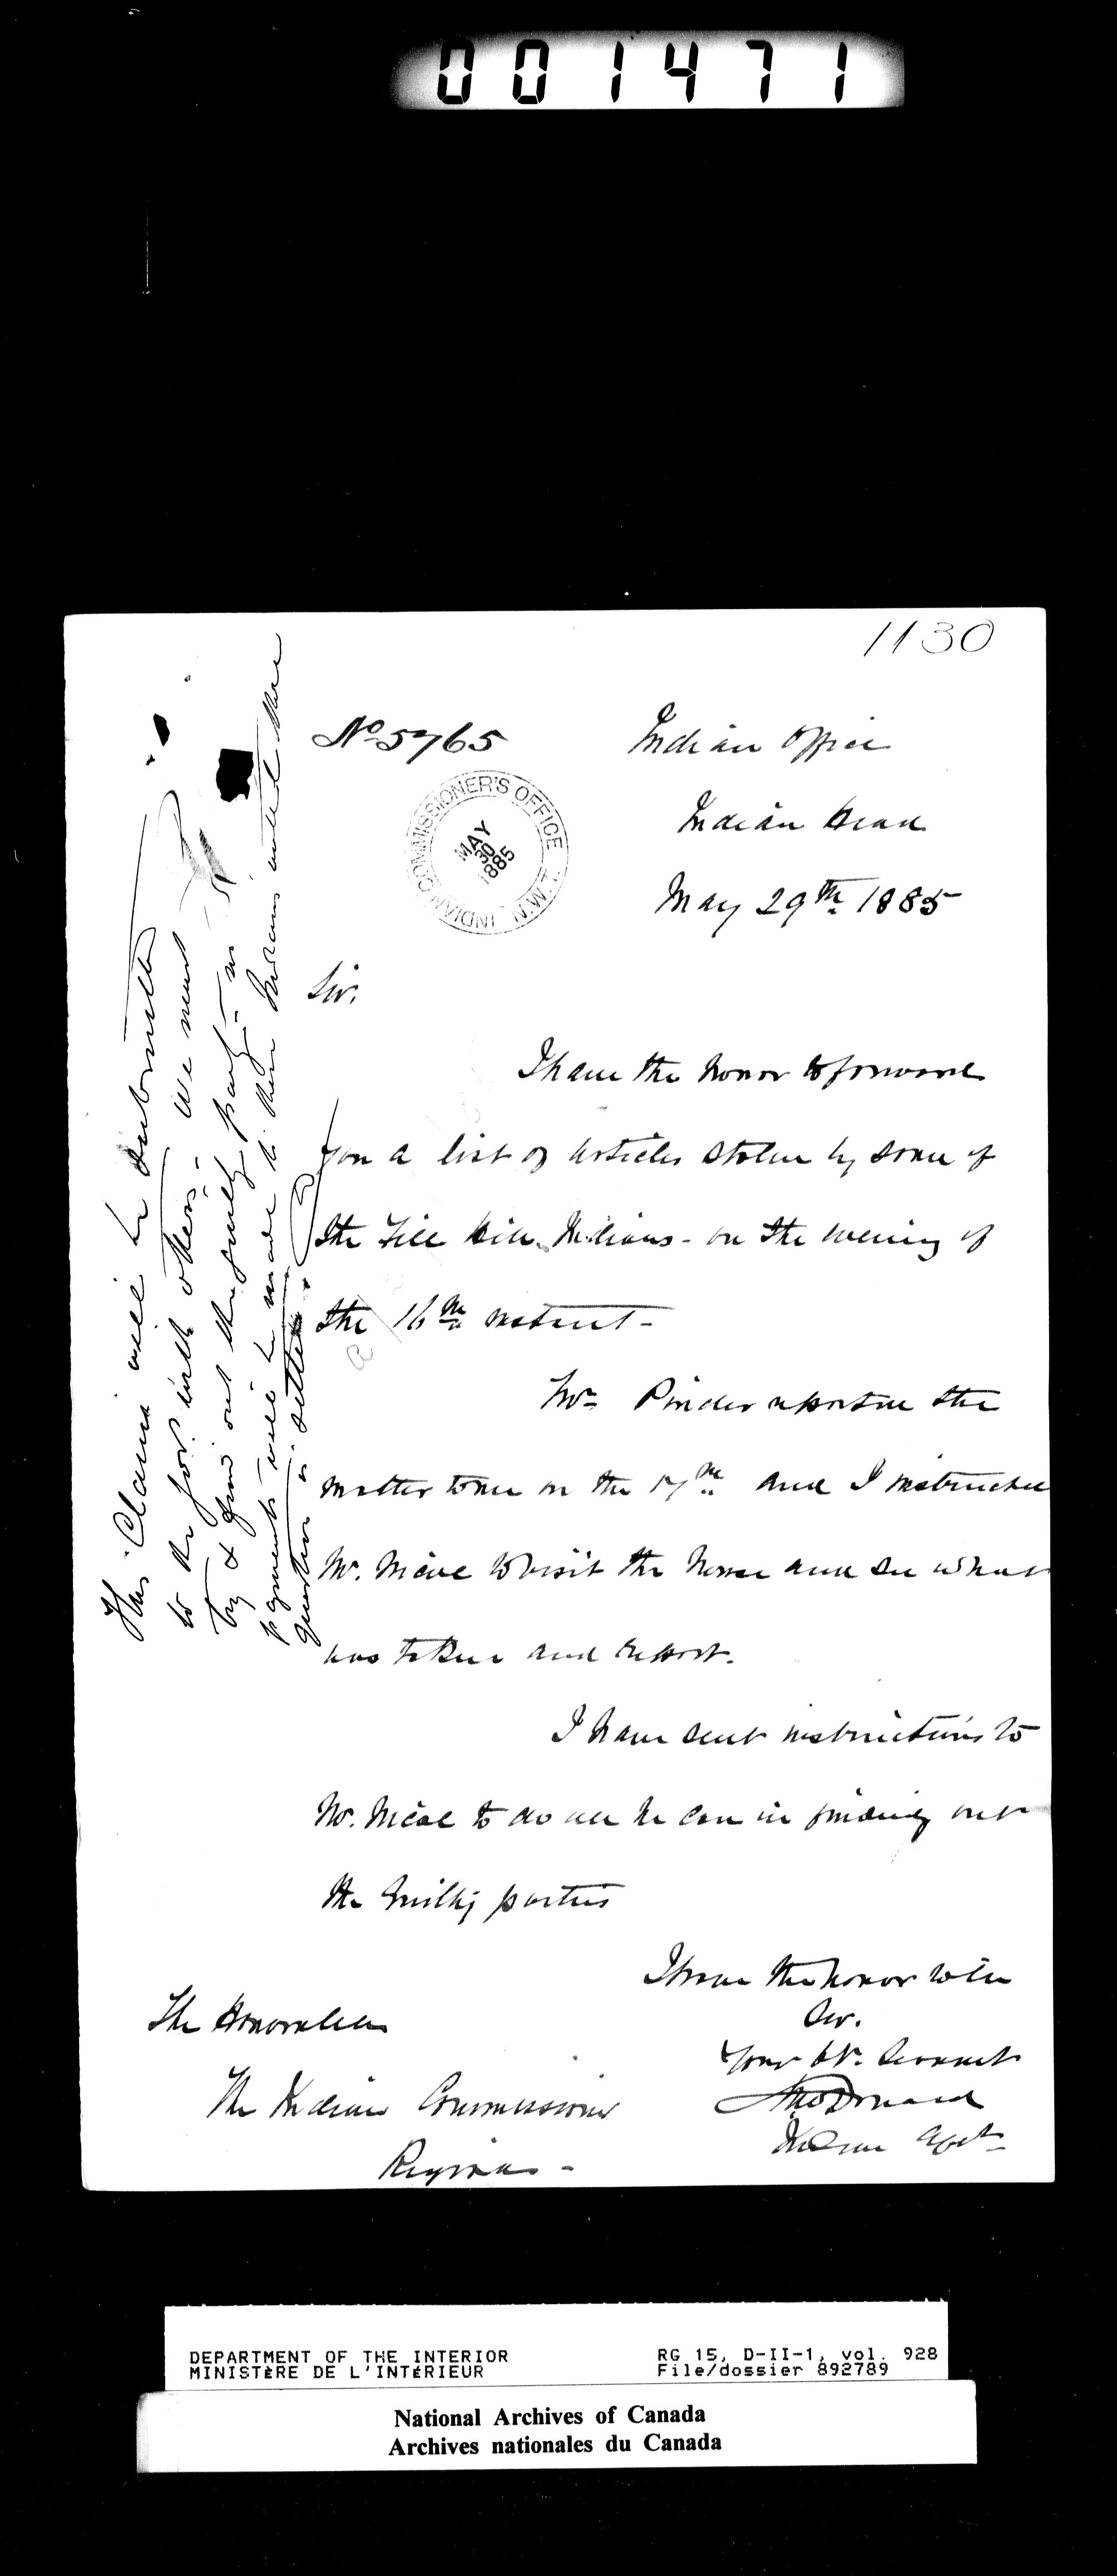 001471
1130
No 5765
Indian Office
Indian Head
May 29th 1885
INDIAN COMMISSIONER'S OFFICE N.W.T.
MAY
30
1885
Sir.
I have the honor to forward
you a list of articles stolen by some of
the File Hill Indians - on the evening of
the 16th instant -
Mr Pinder reported the
matter to me on the 17th and I instructed
Mr. Nicol to visit the house and see what
was taken and report.
I have sent instructions to
Mr. Nicol to do all he can in finding out
the Guilty parties
I have the honor to be
Sir.
Your Obt. Servant
A McDonald
Indian Agent
The Honorable
The Indian Commissioner
Regina -
This Claim will be submitted
to the Gov. with others - We must
try & find out the guilty party - no
payments will be made to these Indians until the
question is settled
DEPARTMENT OF THE INTERIOR
MINISTÈRE DE L'INTÉRIEUR
RG 15, D-II-1, vol. 928
File/dossier 892789
National Archives of Canada
Archives nationales du Canada